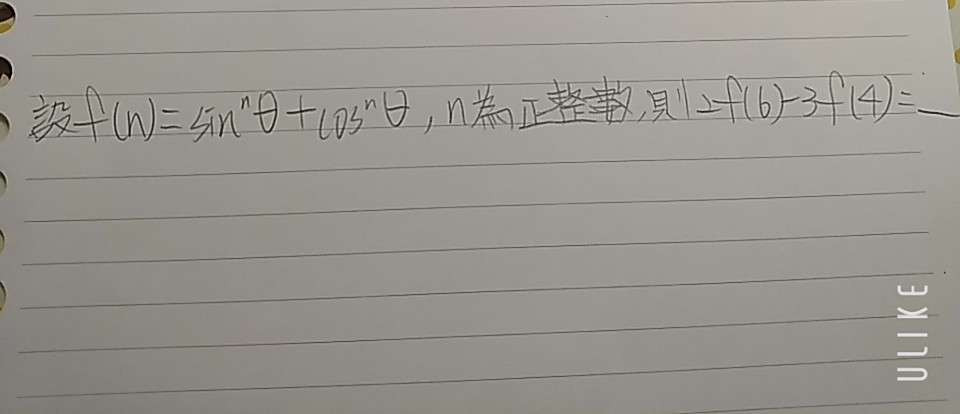 設f(n)=sinⁿθ+cosⁿθ,n為正整數,則2f(6)-3f(4)=_
ULIKE